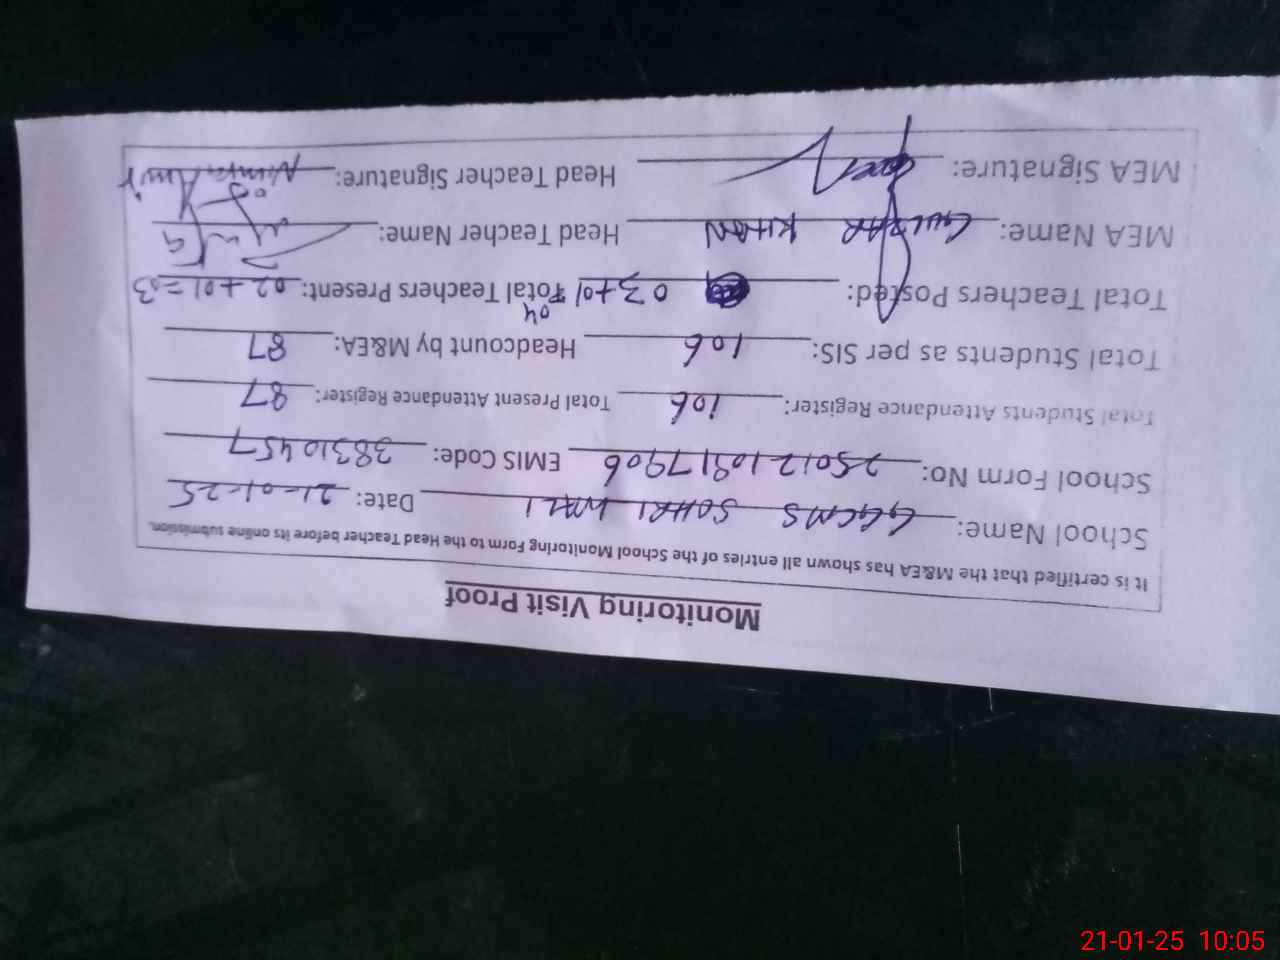 Monitoring Visit Proof
It is certified that the M&EA has shown all entries of the School Monitoring Form to the Head Teacher before its online submission.
School Name: GGCMS SOHRI WALI Date: 21-01-25
School Form No: 2501210917906 EMIS Code: 38310457
Total Students Attendance Register: 106 Total Present Attendance Register: 87
Total Students as per SIS: 106 Headcount by M&EA: 87
Total Teachers Posted: 03+01 04 Total Teachers Present: 02+01=03
MEA Name: GULZAR KHAN Head Teacher Name:
MEA Signature: Head Teacher Signature:
21-01-25 10:05